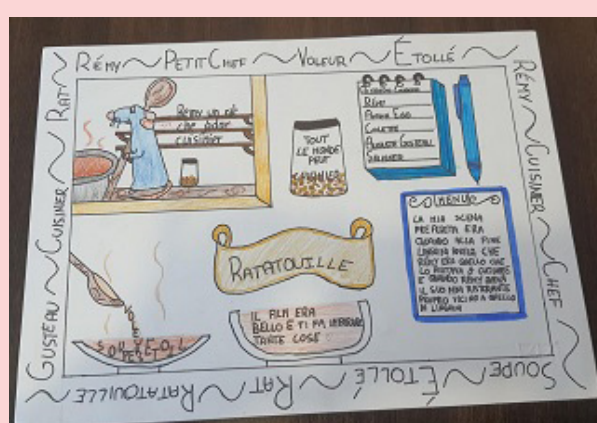 RÉMY PETIT CHEF VOLEUR ÉTOLLÉ
RÉMY CUISINER CHEF
SOUPE ÉTOLLÉ RAT RATATOUILLE
GUSTEAU CUISINER RAT
Rémy un
cuisinier
TOUT
LE MONDE
PEUT
CUISINER
RÉMY
ANTON EGO
COLETTE
AUGUSTE GUSTEAU
SKINNER
RATATOUILLE
MENU
LA MIA SCENA
PREFERITA ERA
QUANDO ALLA FINE
LINGUINI CHE
RÉMY ERA QUELLO CHE
LO AIUTAVA A CUCINARE
E QUANDO RÉMY
IL SUO RISTORANTE
PROPRIO VICINO A QUELLO
DI LINGUINI
IL FILM ERA
BELLO E TI FA IMPARARE
TANTE COSE